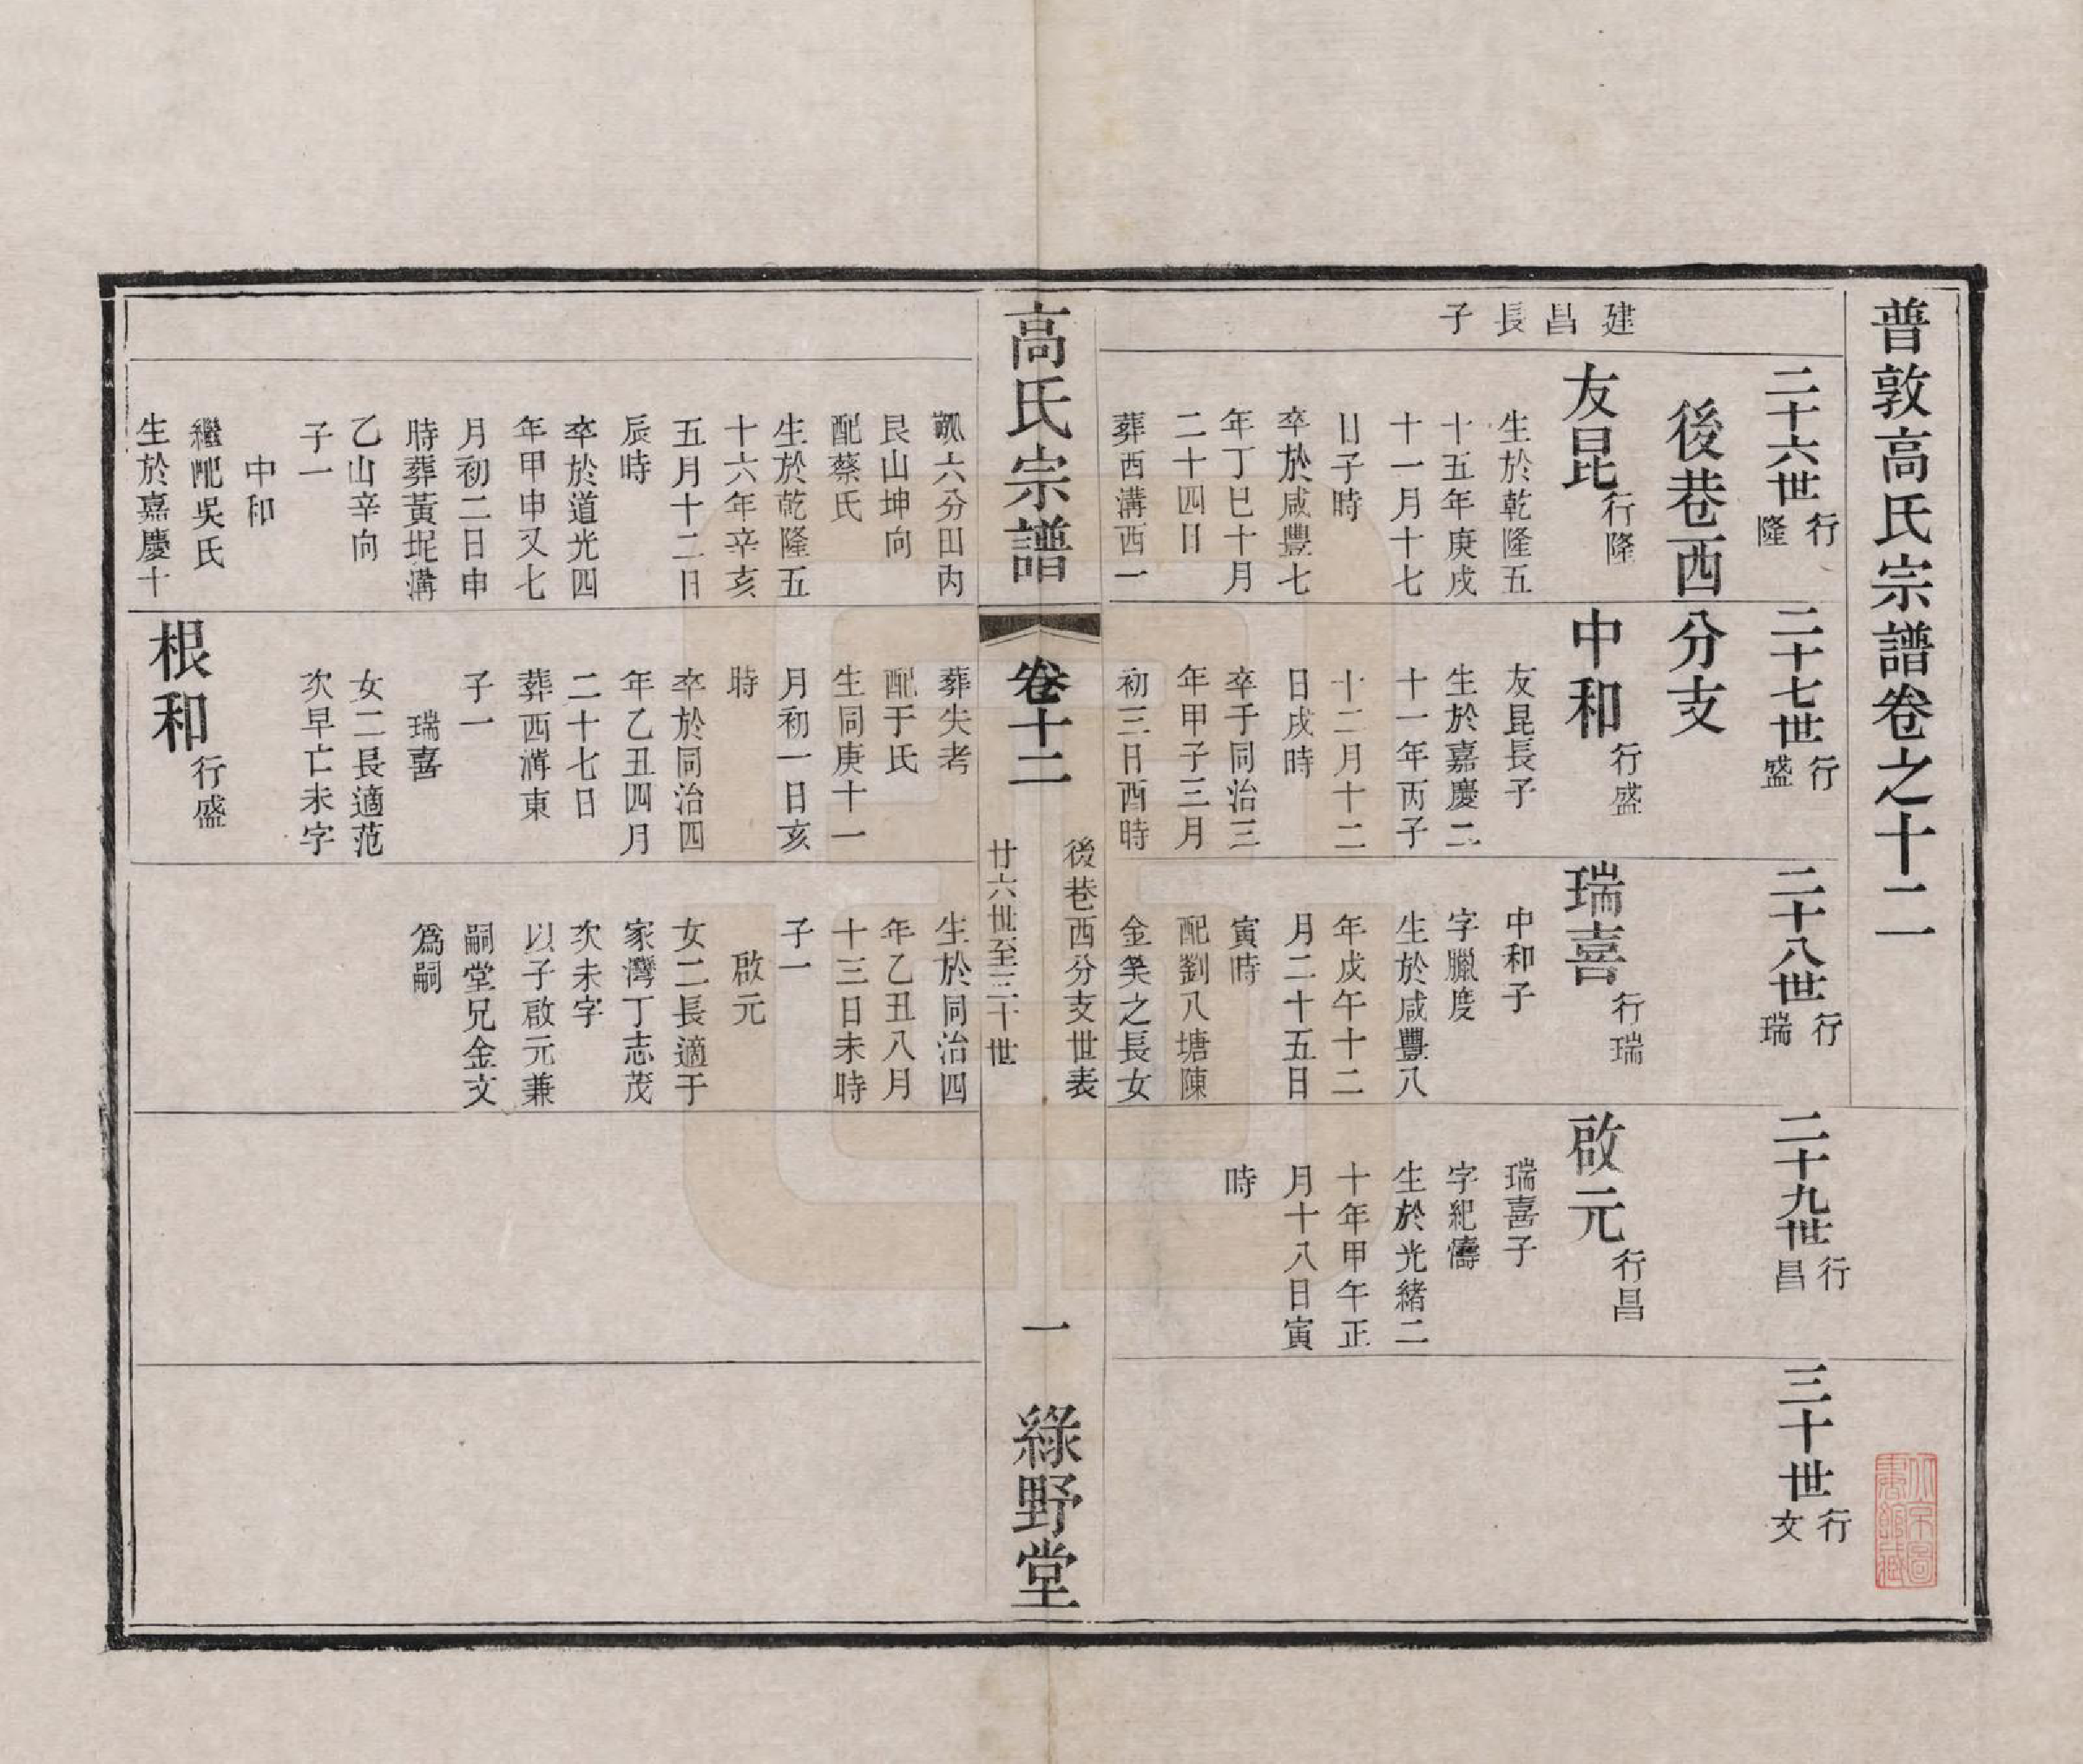 普敦高氏宗譜卷之十二
二十六世行隆
二十七世行盛
二十八世行瑞
二十九世行昌
三十世行文
後巷西分支
建昌長子
友昆行隆
生於乾隆五
十五年庚戌
十一月十七
日子時
卒於咸豐七
年丁巳十月
二十四日
葬西溝西一
瓢六分田內
艮山坤向
配蔡氏
生於乾隆五
十六年辛亥
五月十二日
辰時
卒於道光四
年甲申又七
月初二日申
時葬黃坭溝
乙山辛向
子一
中和
繼配吳氏
生於嘉慶十
中和行盛
友昆長子
生於嘉慶二
十一年丙子
十二月十二
日戌時
卒于同治三
年甲子三月
初三日酉時
葬失考
配于氏
生同庚十一
月初一日亥
時
卒於同治四
年乙丑四月
二十七日
葬西溝東
子一
瑞喜
女二長適范
次早亡未字
根和行盛
瑞喜行瑞
中和子
字臘度
生於咸豐八
年戊午十二
月二十五日
寅時
配劉八塘陳
金美之長女
生於同治四
年乙丑八月
十三日未時
子一
啟元
女二長適于
家灣丁志茂
次未字
以子啟元兼
嗣堂兄金文
為嗣
啟元行昌
瑞喜子
字紀儔
生於光緒二
十年甲午正
月十八日寅
時
高氏宗譜
卷十二
後巷西分支世表
廿六世至三十世
一
綠野堂